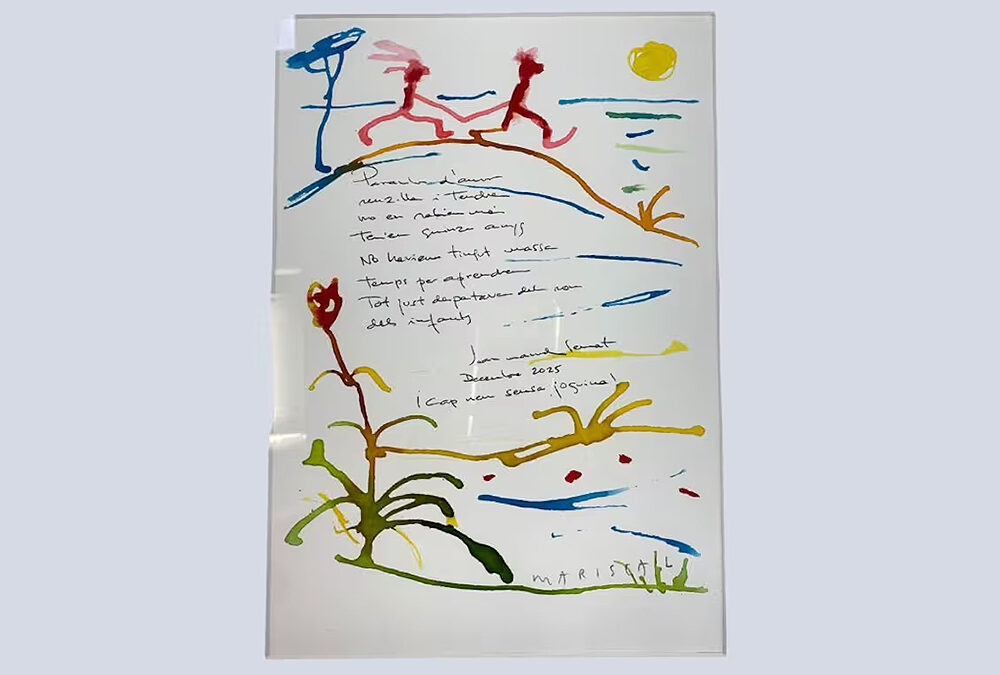 Paraules d'amor
senzilles i tendres
no en sabíem més
teníem quinze anys
No havíem tingut massa
temps per aprendre
Tot just despertàvem del son
dels infants
Joan Manuel Serrat
Desembre 2025
¡Cap nen sense joguina!
MARISCAL